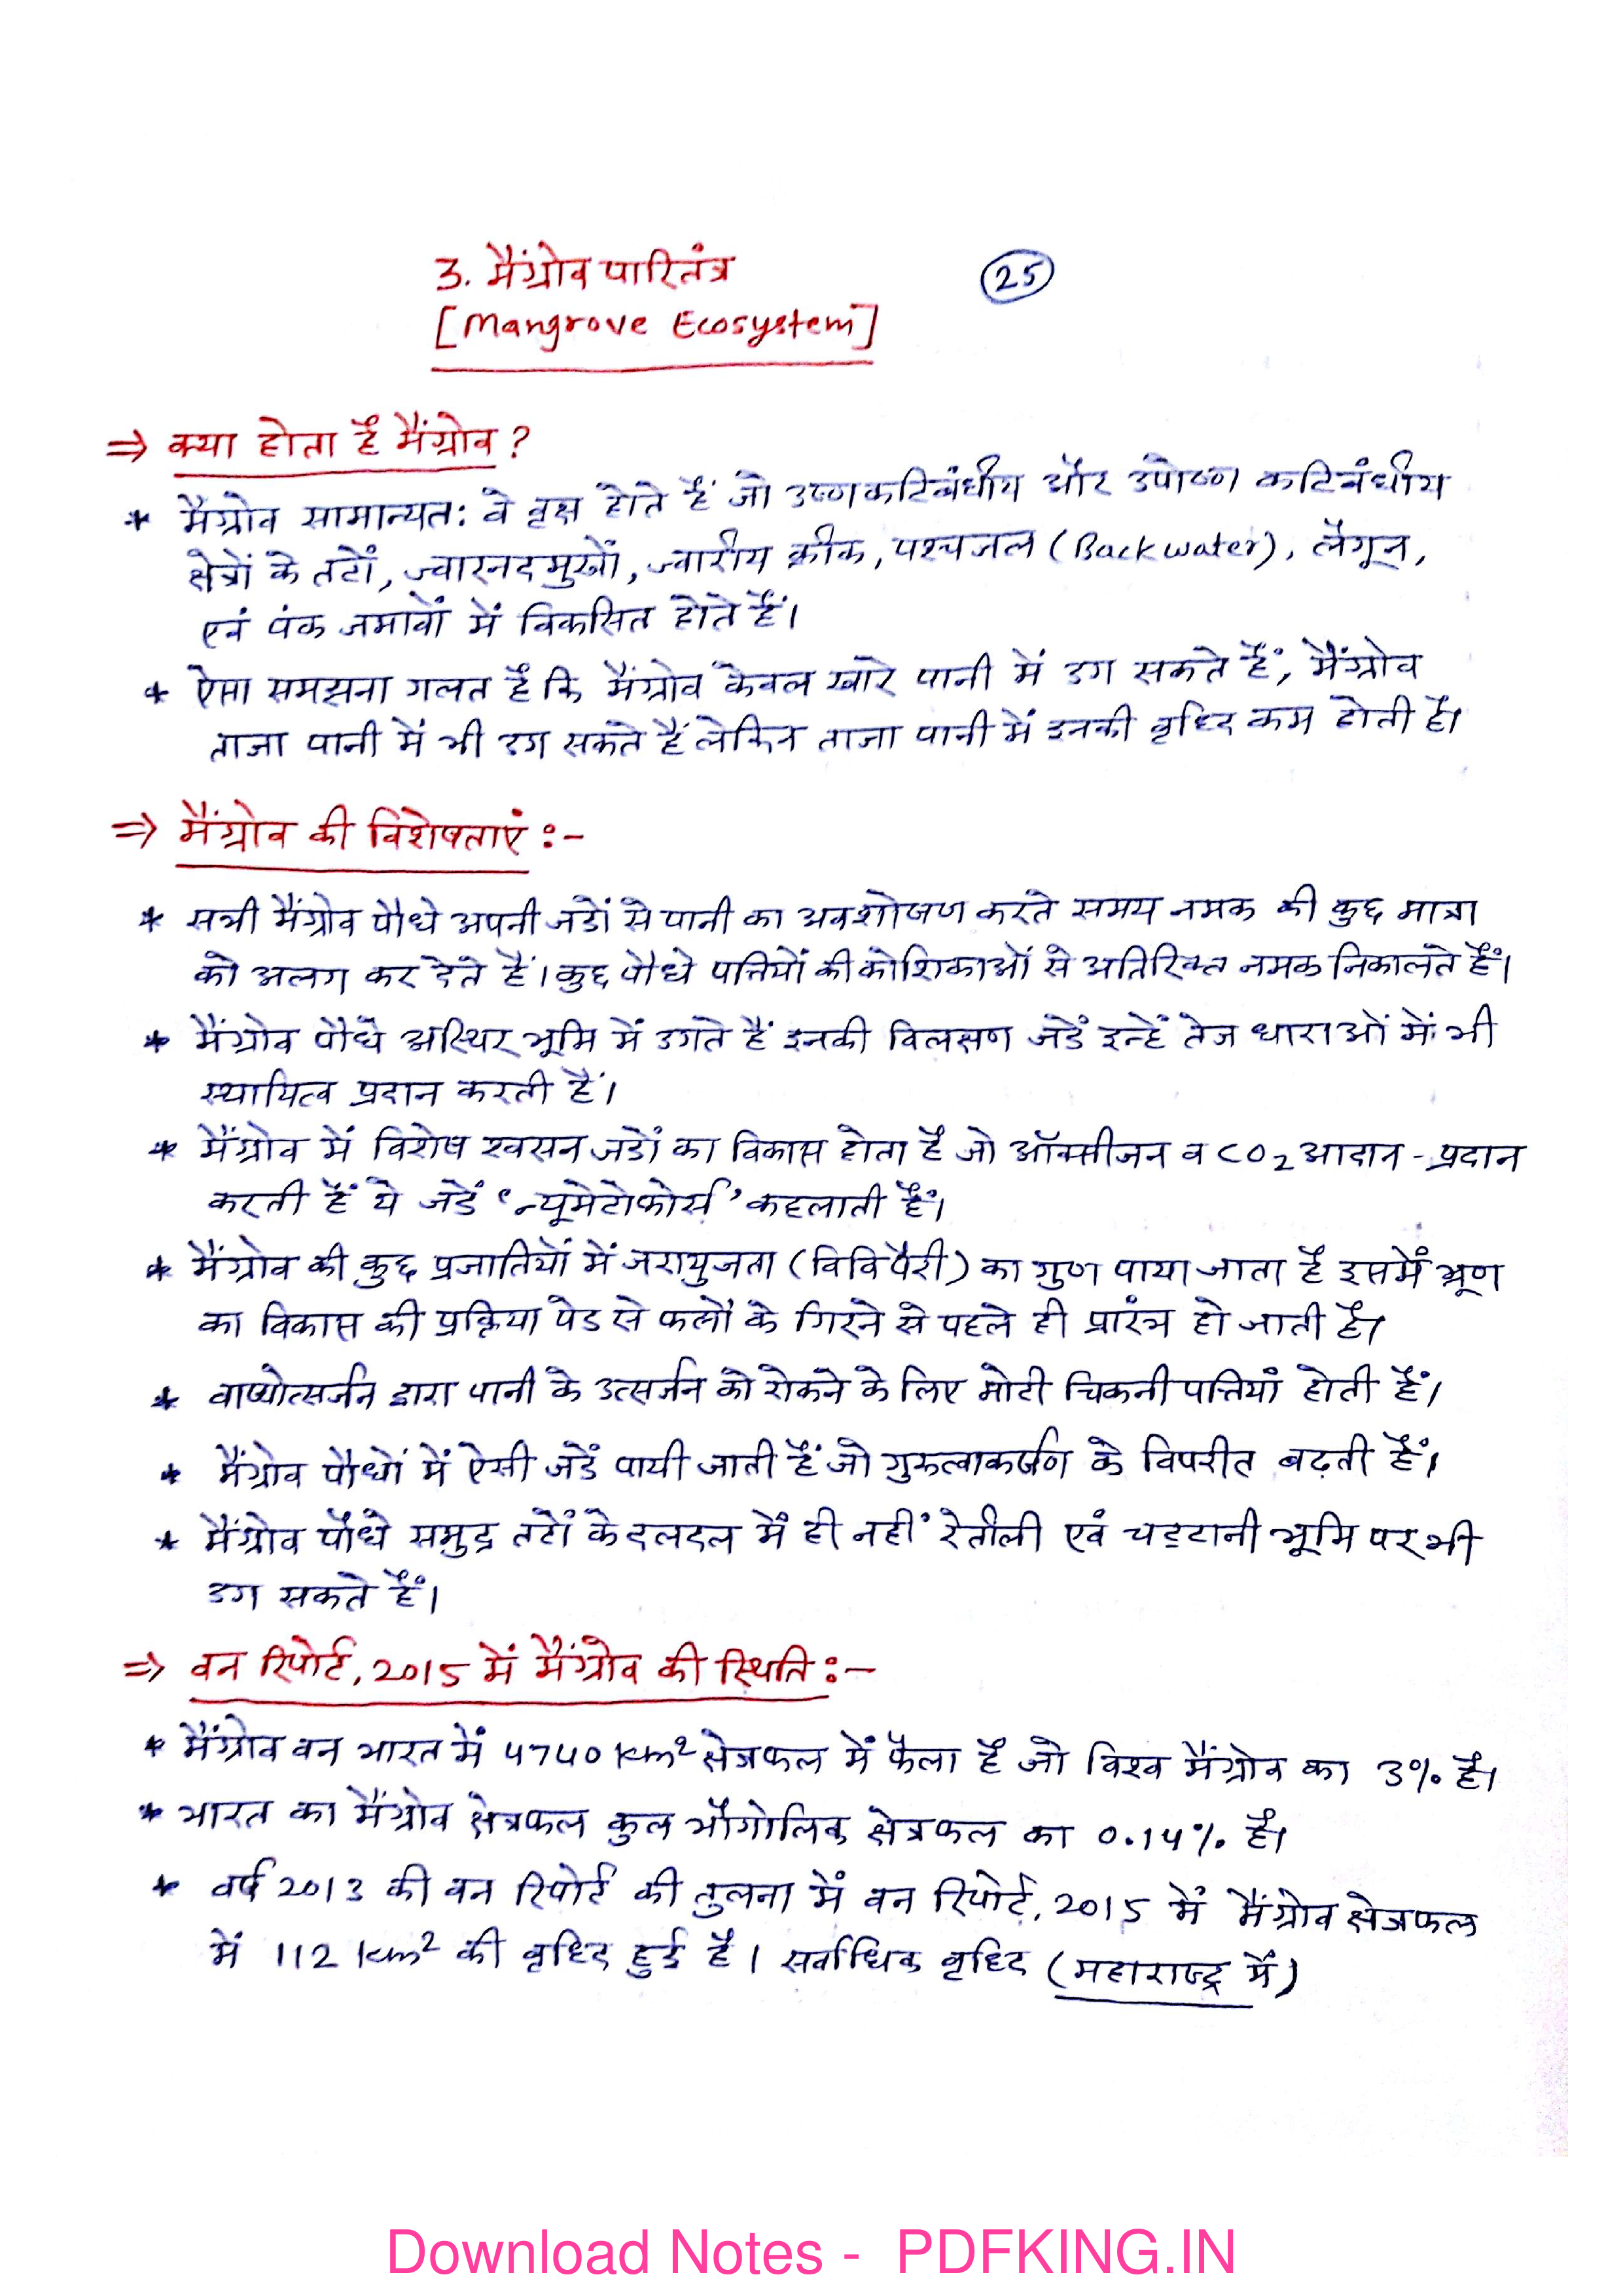 3. मैंग्रोव पारितंत्र
25
[Mangrove Ecosystem]
⇒ क्या होता है मैंग्रोव ?
* मैंग्रोव सामान्यत: वे वृक्ष होते हैं जो उष्णकटिबंधीय और उपोष्ण कटिबंधीय
क्षेत्रों के तटों, ज्वारनदमुखों, ज्वारीय क्रीक, पश्चजल (Backwater), लैगून,
एवं पंक जमावों में विकसित होते हैं।
* ऐसा समझना गलत है कि मैंग्रोव केवल खारे पानी में उग सकते हैं, मैंग्रोव
ताजा पानी में भी उग सकते हैं लेकिन ताजा पानी में इनकी वृध्दि कम होती है।
⇒ मैंग्रोव की विशेषताएं :-
* सभी मैंग्रोव पौधे अपनी जडों से पानी का अवशोषण करते समय नमक की कुछ मात्रा
को अलग कर देते हैं। कुछ पौधे पत्तियों की कोशिकाओं से अतिरिक्त नमक निकालते हैं।
* मैंग्रोव पौधे अस्थिर भूमि में उगते हैं इनकी विलक्षण जडें इन्हें तेज धाराओं में भी
स्थायित्व प्रदान करती हैं।
* मैंग्रोव में विशेष श्वसन जडों का विकास होता है जो ऑक्सीजन व CO2 आदान-प्रदान
करती हैं ये जडें 'न्यूमेटोफोर्स' कहलाती हैं।
* मैंग्रोव की कुछ प्रजातियों में जरायुजता (विविपैरी) का गुण पाया जाता है इसमें भ्रूण
का विकास की प्रक्रिया पेड से फलों के गिरने से पहले ही प्रारंभ हो जाती है।
* वाष्पोत्सर्जन द्वारा पानी के उत्सर्जन को रोकने के लिए मोटी चिकनी पत्तियाँ होती हैं।
* मैंग्रोव पौधों में ऐसी जडें पायी जाती हैं जो गुरुत्वाकर्षण के विपरीत बढ़ती हैं।
* मैंग्रोव पौधे समुद्र तटों के दलदल में ही नहीं रेतीली एवं चट्टानी भूमि पर भी
उग सकते हैं।
⇒ वन रिपोर्ट, 2015 में मैंग्रोव की स्थिति :-
* मैंग्रोव वन भारत में 4740 km² क्षेत्रफल में फैला है जो विश्व मैंग्रोव का 3% है।
* भारत का मैंग्रोव क्षेत्रफल कुल भौगोलिक क्षेत्रफल का 0.14% है।
* वर्ष 2013 की वन रिपोर्ट की तुलना में वन रिपोर्ट, 2015 में मैंग्रोव क्षेत्रफल
में 112 km² की वृध्दि हुई है। सर्वाधिक वृध्दि (महाराष्ट्र में)
Download Notes - PDFKING.IN